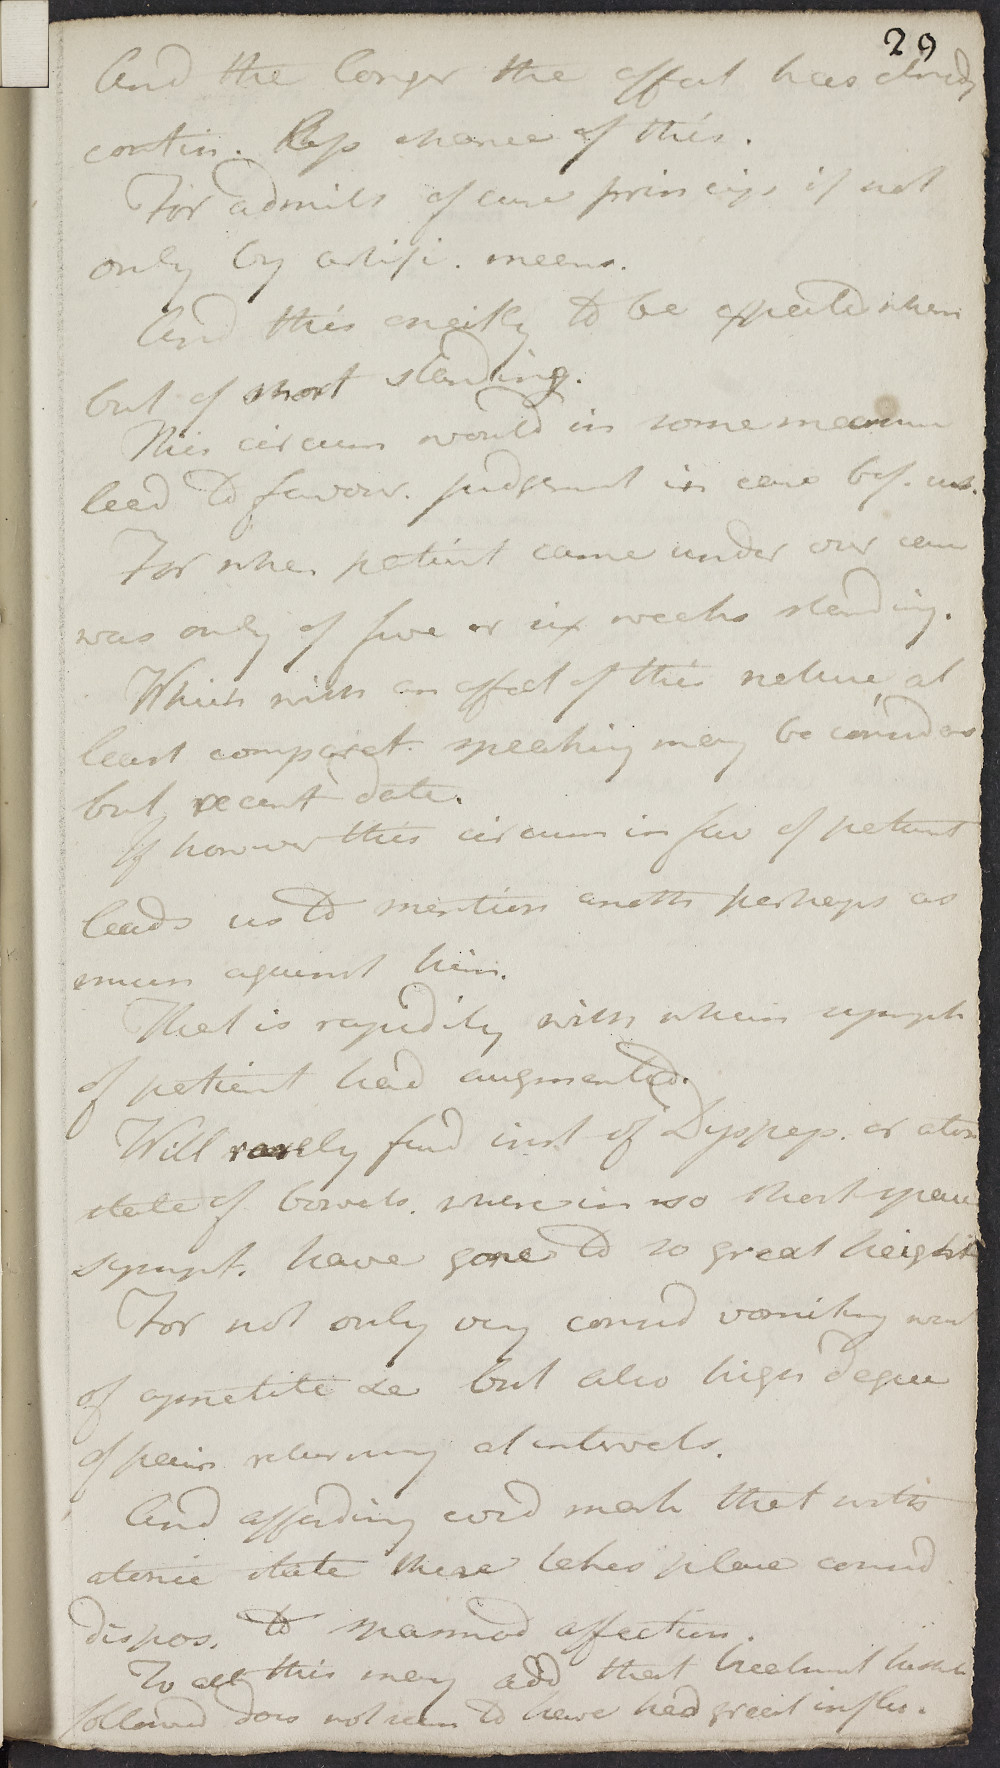 29
And the longer the affect has alredy
contin. less chance of this.
For admits of cure princips if not
only by artifi. means.
And this easily to be expected when
but of short standing.
This circum would in some measure
lead to favour. judgment in case bef. us.
For when patient came under our care
was only of five or six weeks standing.
Which with an affect of this nature at
least comparat. speaking may be considerd
but recent date.
If however this circum in fav of patient
leads us to mention anoth perhaps as
much against him.
That is rapidity with which sympt
of patient had augmented.
Will rarely find inst of Dyspep. or aton
state of bowels. where in so short space
sympt. have gone to so great height
For not only very consid vomiting want
of appetite &c but also high degree
of pain returning at intervals.
And affording evid mark that with
atonic state there takes place consid
dispos. to spasmod affection.
To all this may add that treatment hitherto
followed does not seem to have had great influ.